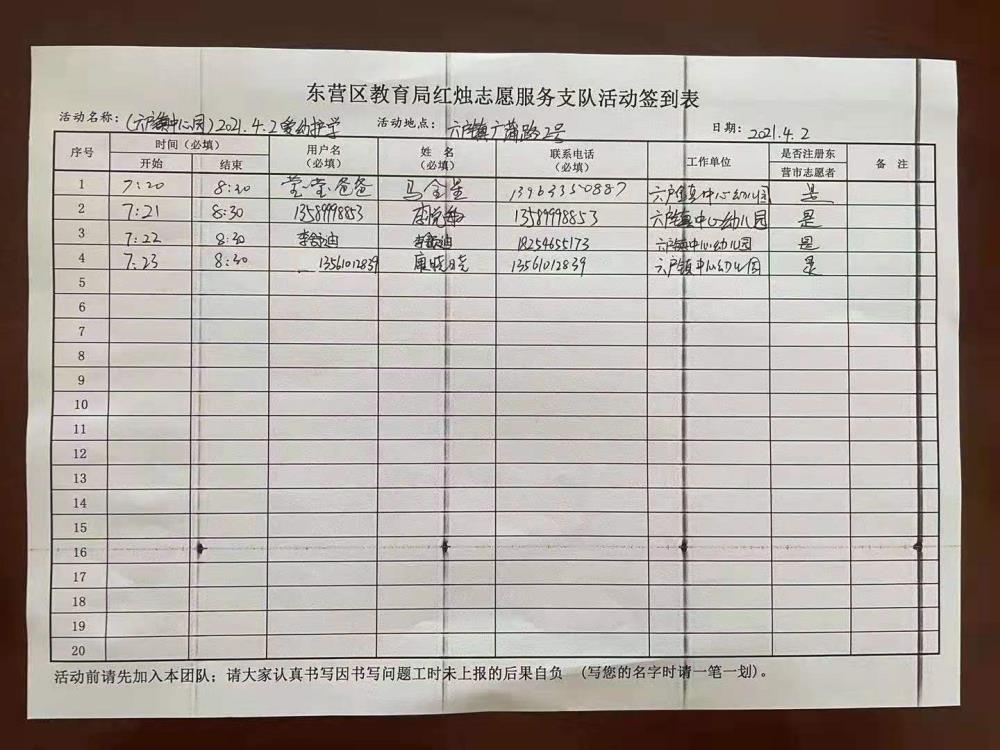 东营区教育局红烛志愿服务支队活动签到表
活动名称：(六户镇中心园)2021.4.2爱幼护学 活动地点：六户镇广蒲路2号 日期：2021.4.2
序号 时间（必填） 开始 结束 用户名（必填） 姓名（必填） 联系电话（必填） 工作单位 是否注册东营市志愿者 备注
1 7:20 8:30 莹莹爸爸 马金星 13963350887 六户镇中心幼儿园 是
2 7:21 8:30 13589998853 李悦梅 13589998853 六户镇中心幼儿园 是
3 7:22 8:30 18254655173 六户镇中心幼儿园 是
4 7:23 8:30 13561012839 康晓晓 13561012839 六户镇中心幼儿园 是
5
6
7
8
9
10
11
12
13
14
15
16
17
18
19
20
活动前请先加入本团队；请大家认真书写因书写问题工时未上报的后果自负 （写您的名字时请一笔一划）。